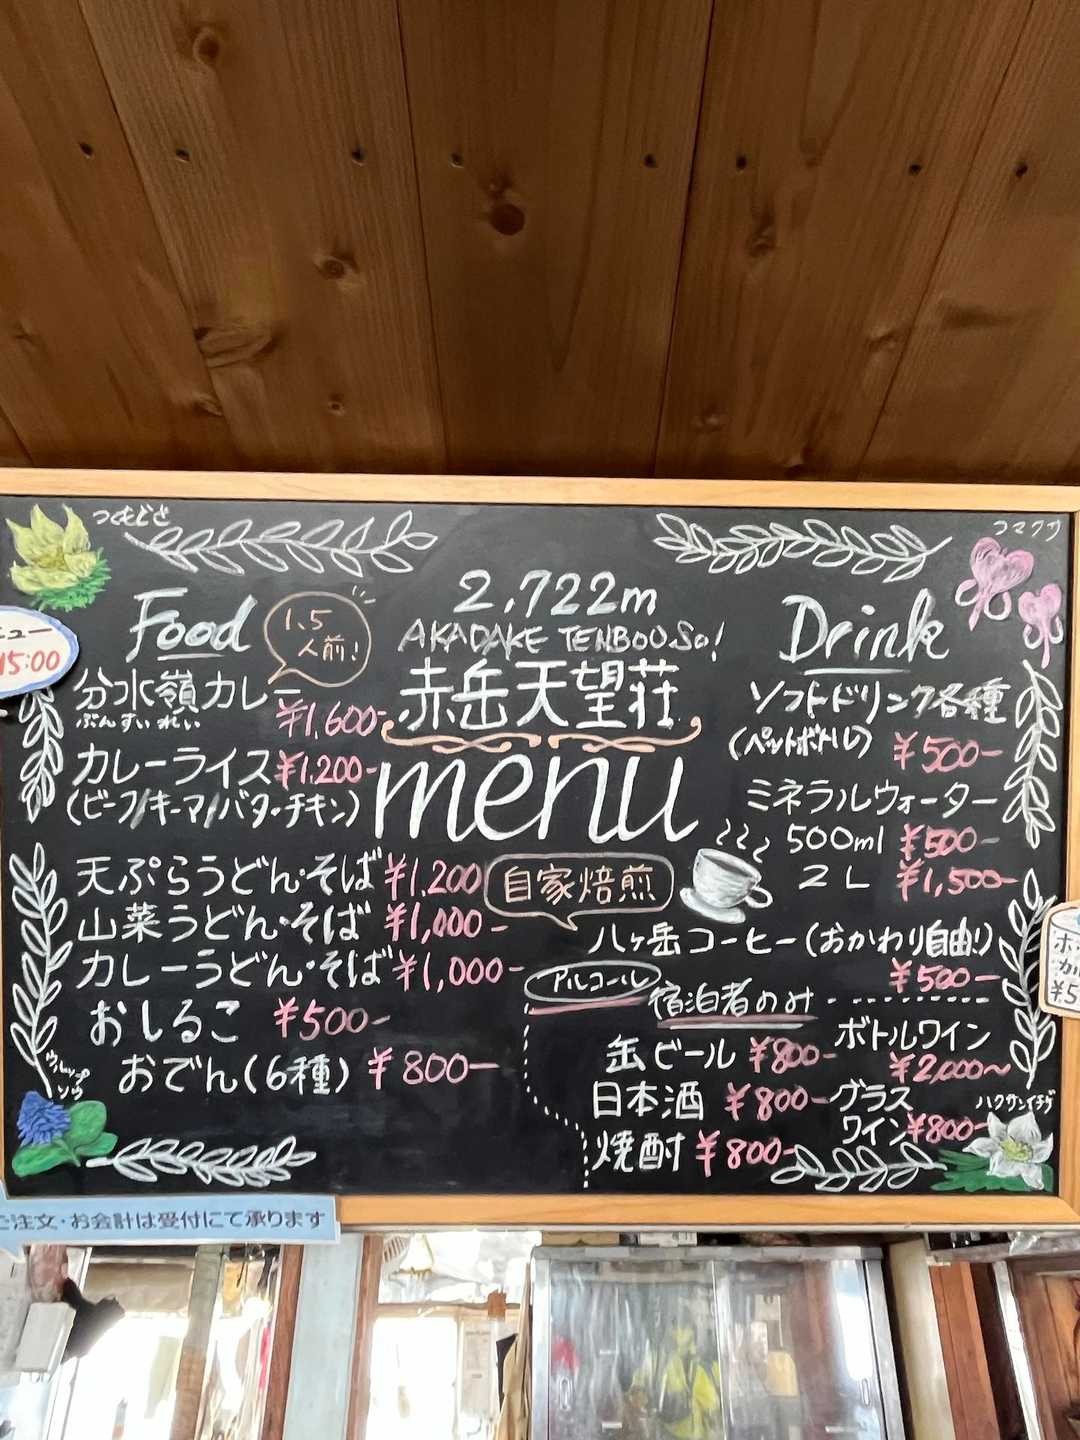 つくもぐさ
コマクサ
ュー
15:00
Food
1.5
人前!
分水嶺カレー
ぶんすいれい
¥1,600-
カレーライス ¥1,200-
(ビーフ/キーマ/バターチキン)
天ぷらうどん・そば ¥1,200
山菜うどん・そば ¥1,000-
カレーうどん・そば ¥1,000-
おしるこ ¥500-
おでん(6種) ¥800-
ウルップ
ソウ
2,722m
AKADAKE TENBOUSo!
赤岳天望荘
menu
Drink
ソフトドリンク各種
(ペットボトル) ¥500-
ミネラルウォーター
500ml ¥500-
2L ¥1,500-
自家焙煎
八ヶ岳コーヒー(おかわり自由!)
¥500-
アルコール
宿泊者のみ
缶ビール ¥800-
日本酒 ¥800-
焼酎 ¥800-
ボトルワイン
¥2,000~
グラス
ワイン ¥800-
ハクサンイチゲ
ホ
カル
¥5
ご注文・お会計は受付にて承ります